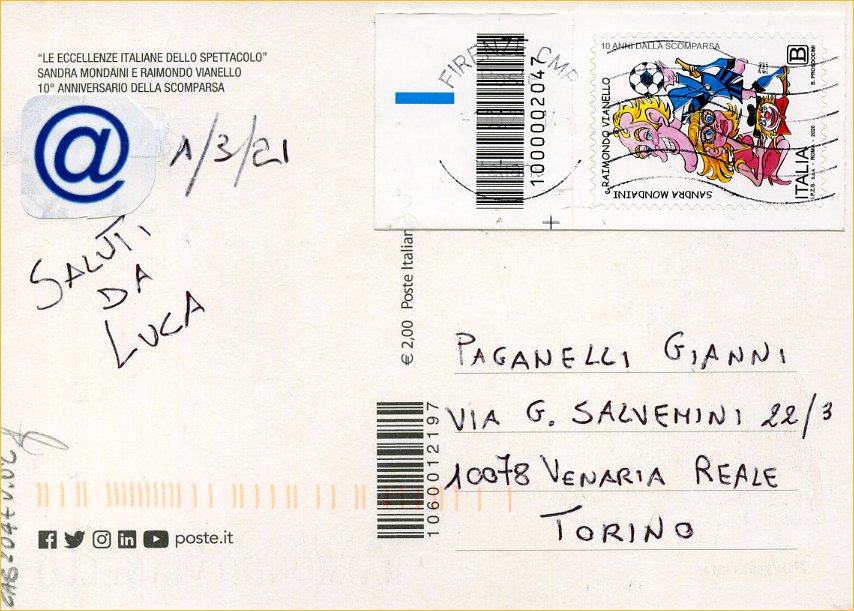 "LE ECCELLENZE ITALIANE DELLO SPETTACOLO"
SANDRA MONDAINI E RAIMONDO VIANELLO
10° ANNIVERSARIO DELLA SCOMPARSA
@
1/3/21
SALUTI
DA
LUCA
FIRENZE CMP
1000002047
10 ANNI DALLA SCOMPARSA
B
B. PROSDOCIMI
SANDRA MONDAINI
e RAIMONDO VIANELLO
ITALIA
I.P.Z.S. S.p.A. - ROMA - 2020
€ 2,00 Poste Italian
PAGANELLI GIANNI
VIA G. SALVEMINI 22/3
10078 VENARIA REALE
TORINO
10600012197
poste.it